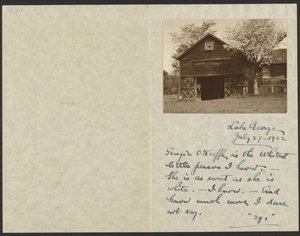 Lake George
July 27 - 1922
Georgia O'Keeffe is the Whitest
little person I know.
She is as sweet as she is
white. — I know. — And
know much more I dare
not say.
"291"